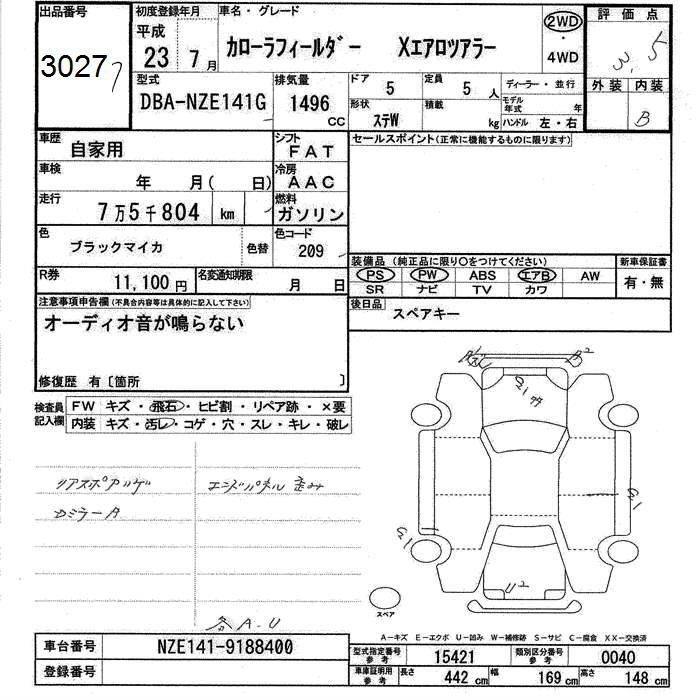 出品番号 初度登録年月 車名・グレード 評価点
3027 平成 23 7月 カローラフィールダー Xエアロツアラー 2WD ・ 4WD 3.5
型式 排気量 ドア 定員 ディーラー・並行 外装 内装
DBA-NZE141G 1496 CC 5 5 人 B
形状 積載 モデル年式 年
ステW kg ハンドル 左・右
車歴 自家用 シフト FAT セールスポイント(正常に機能するものに限ります)
車検 年 月( 日) 冷房 AAC
走行 7万5千804 km 燃料 ガソリン
色 ブラックマイカ 色替 色コード 209
装備品(純正品に限り○をつけてください) 新車保証書
R券 11,100円 名変通知期限 月 日 PS PW ABS エアB AW 有・無
SR ナビ TV カワ
注意事項申告欄(不具合内容等は具体的に記入して下さい) 後日品 スペアキー
オーディオ音が鳴らない
修復歴 有〔箇所 〕
検査員記入欄 FW キズ・飛石・ヒビ割・リペア跡・×要
内装 キズ・汚レ・コゲ・穴・スレ・キレ・破レ
B2
リアスポアゲ エンドパネル歪み
DミラーA
U2
各A.U
スペア
A-キズ E-エクボ U-凹み W-補修跡 S-サビ C-腐食 XX-交換済
車台番号 NZE141-9188400 型式指定番号 参考 15421 類別区分番号 参考 0040
登録番号 車庫証明用 参考 長さ 442 cm 幅 169 cm 高さ 148 cm